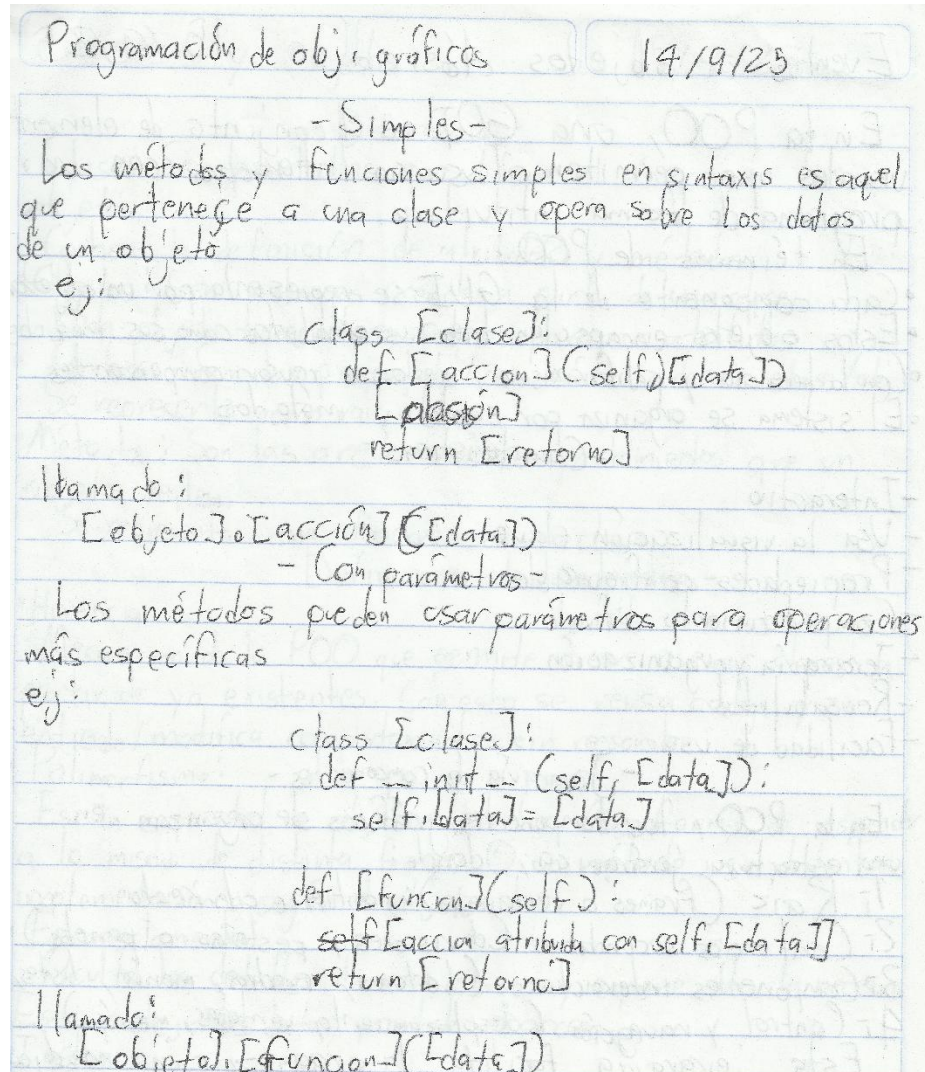 Programación de obj. gráficos 14/9/25
- Simples -
Los métodos y funciones simples en sintaxis es aquel
que pertenece a una clase y opera sobre los datos
de un objeto
ej:
class [clase]:
def [accion](self,)[data])
[acción]
return [retorno]
llamado:
[objeto].[acción]([data])
- Con parámetros -
Los métodos pueden usar parámetros para operaciones
más específicas
ej:
class [clase]:
def __init__ (self, [data]):
self.[data] = [data]
def [funcion](self):
[accion atribuida con self.[data]]
return [retorno]
llamado:
[objeto].[funcion]([data])